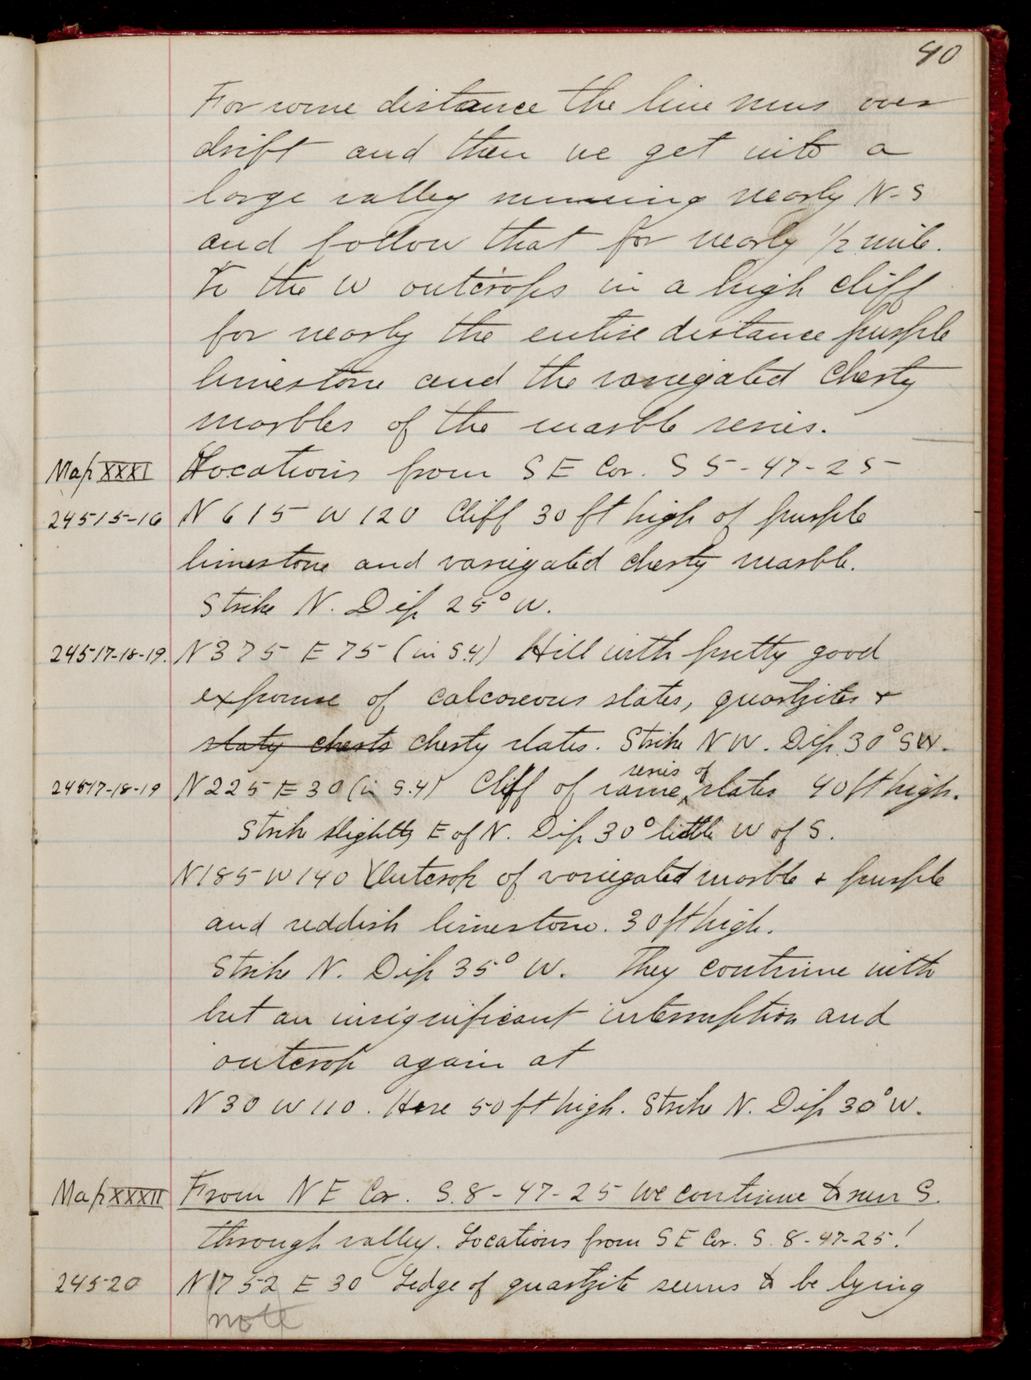 40
For some distance the line runs over
drift and then we get into a
large valley running nearly N-S
and follow that for nearly 1/2 mile.
To the W outcrops in a high cliff
for nearly the entire distance purple
limestone and the variegated cherty
marbles of the marble series.
Map XXXI Locations from S E Cor. S 5-47-25
24515-16 N 615 W 120 Cliff 30 ft high of purple
limestone and variegated cherty marble.
Strike N. Dip 25° W.
24517-18-19. N375 E 75 (in S.4) Hill with pretty good
exposure of calcareous slates, quartzites +
slaty cherts cherty slates. Strike NW. Dip 30° SW.
24517-18-19 N225 E30 (in S.4) Cliff of same series of slates 40 ft high.
Strike slightly E of N. Dip 30° little W of S.
N185 W140 Outcrop of variegated marble + purple
and reddish limestone. 30 ft high.
Strike N. Dip 35° W. They continue with
but an insignificant interruption and
outcrop again at
N30 W110. Here 50 ft high. Strike N. Dip 30° W.
Map XXXII From N E Cor. S.8-47-25 we continue to run S.
through valley. Locations from S E Cor. S. 8-47-25!
24520 N1752 E 30 Ledge of quartzite seems to be lying
note